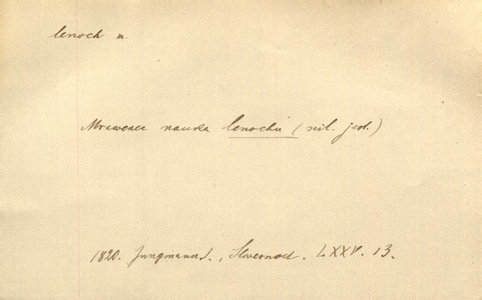 lenoch m.
Mrawenec nauka lenochů (scil. jest.)
1820. Jungmann J., Slovesnost. LXXV. 13.